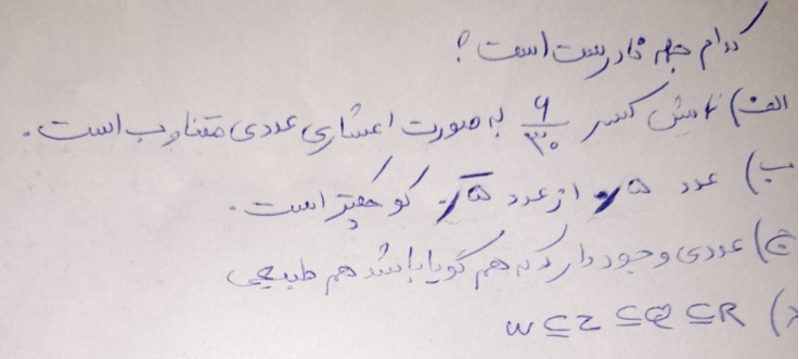 کدام جمله نادرست است ؟
الف) نمایش کسر ۶/۳۰ به صورت اعشاری عددی متناوب است .
ب) عدد ۰/۵ از عدد √۰/۵ کوچکتر است .
ج) عددی وجود دارد که هم گویا باشد هم طبیعی
د) W ⊆ Z ⊆ Q ⊆ R